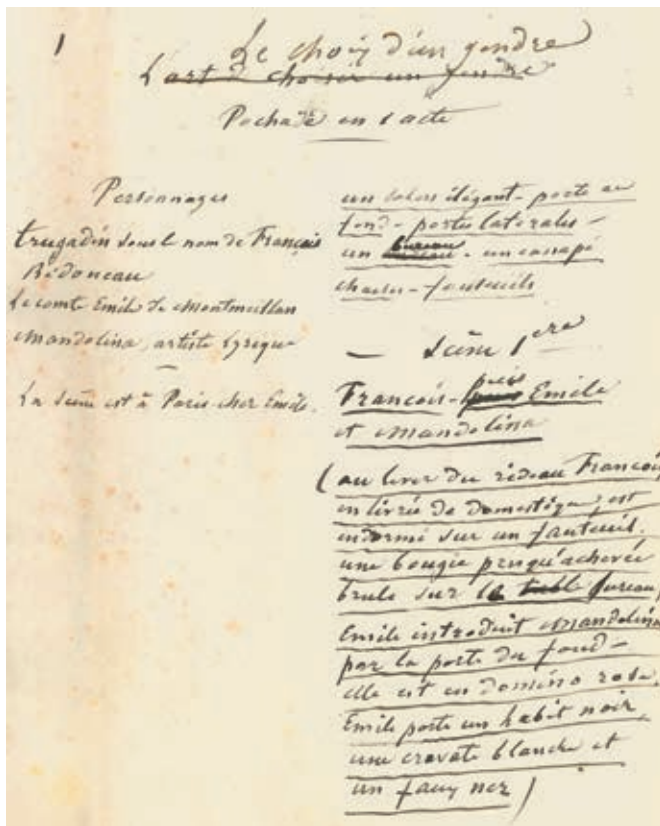 1
Le choix d'un gendre
L'art de choisir un gendre
Pochade en 1 acte
Personnages
trugadin sous le nom de François
Bidonneau
Le comte Emile de Montmeillan
Mandolina, artiste lyrique
La scène est à Paris chez Emile.
un salon élégant - porte au
fond - portes latérales -
un bureau - un canapé
chaises - fauteuils
- Scène 1ère
François - puis Emile
et Mandolina
(au lever du rideau François,
en livrée de domestique, est
endormi sur un fauteuil.
une bougie presqu'achevée
brule sur le table bureau,
Emile introduit Mandolina
par la porte du fond -
elle est en domino rose.
Emile porte un habit noir,
une cravate blanche et
un faux nez)